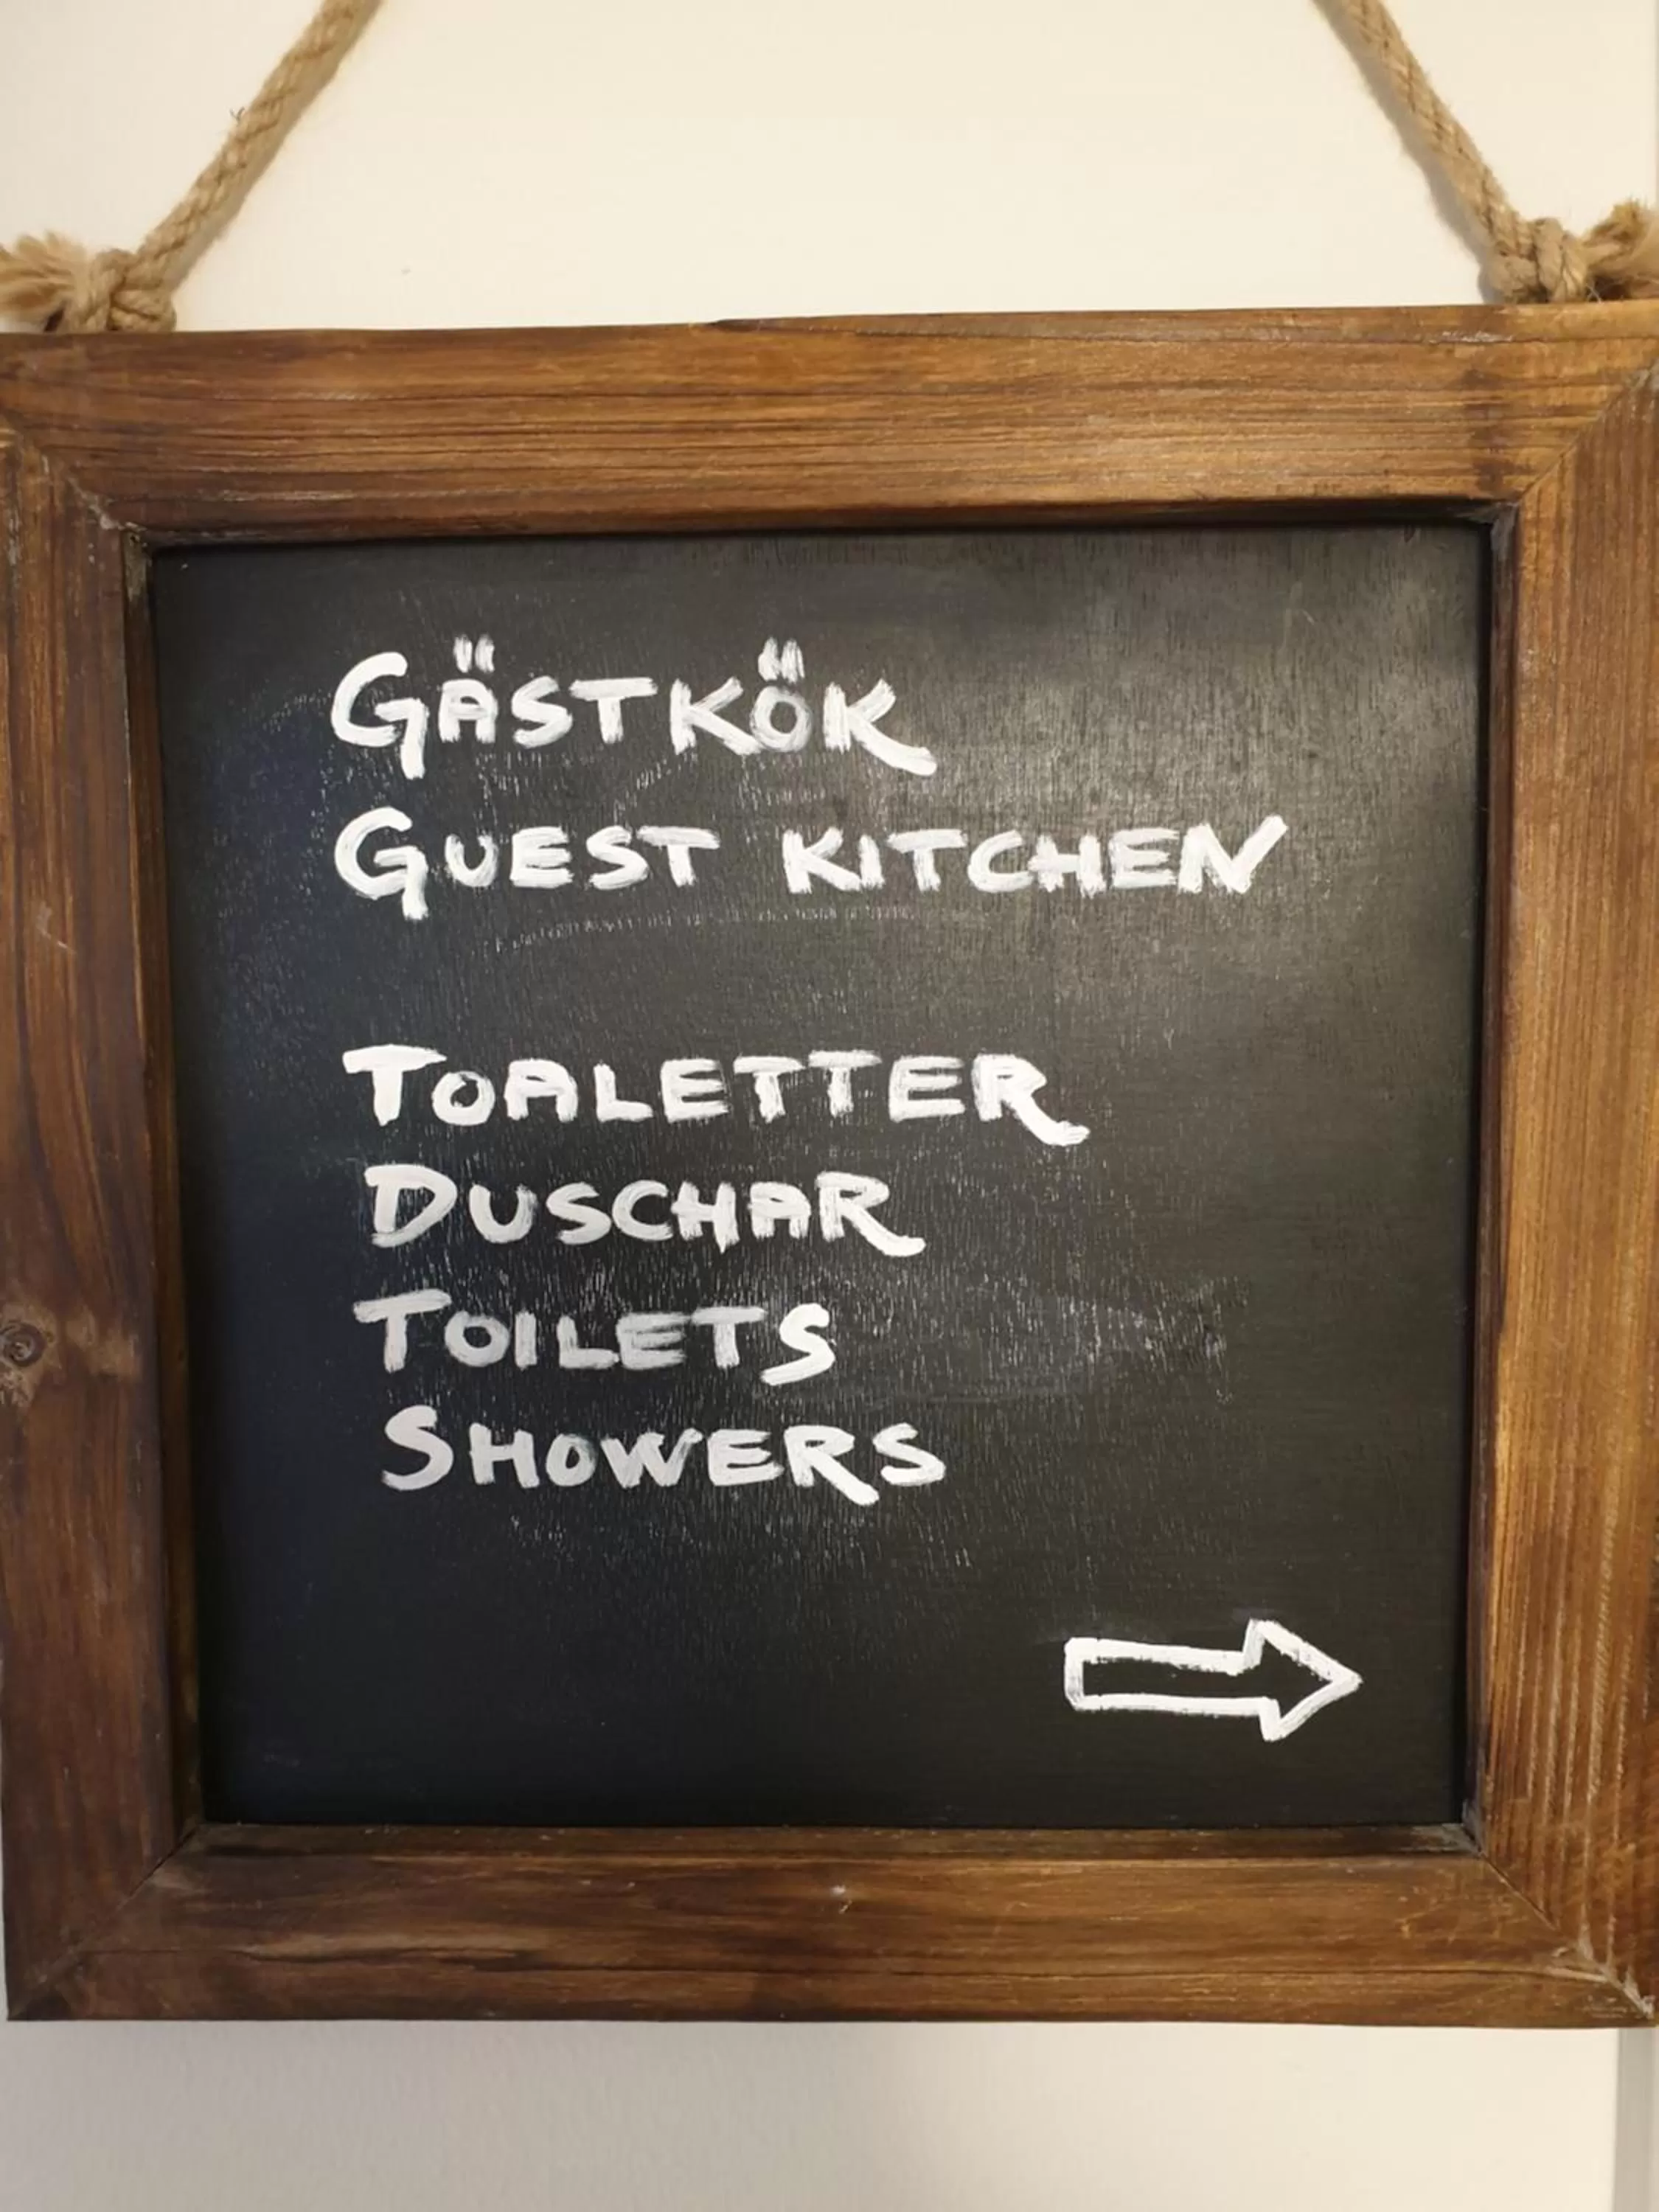 GÄSTKÖK
GUEST KITCHEN
TOALETTER
DUSCHAR
TOILETS
SHOWERS